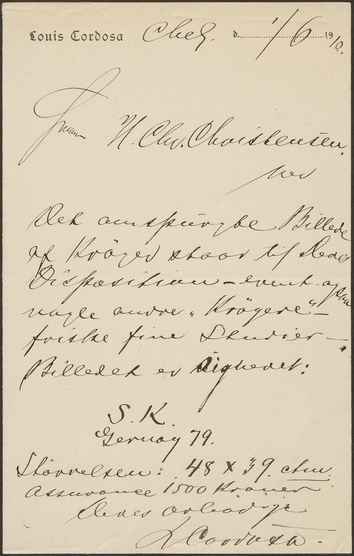 Louis Cordosa Chbg. d. 1/6 1910.
Herrn H. Chr. Christensen.
Det omspurgte Billede
af Kröyer staar til Deres
Disposition – event. ogsaa
nogle andre "Kröyere" –
friske fine Studier –
Billedet er signeret:
S. K.
79.
Størrelsen: 48 x 39 ctm.
Assurance 1500 Kroner
Deres ærbødige
L Cordosa.